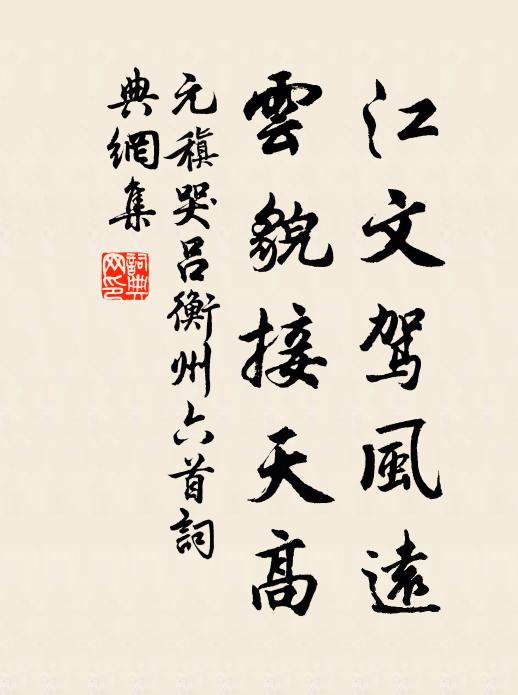 江文駕風遠
雲貌接天高
元稹哭呂衡州六首詞
典網集
詞典網印